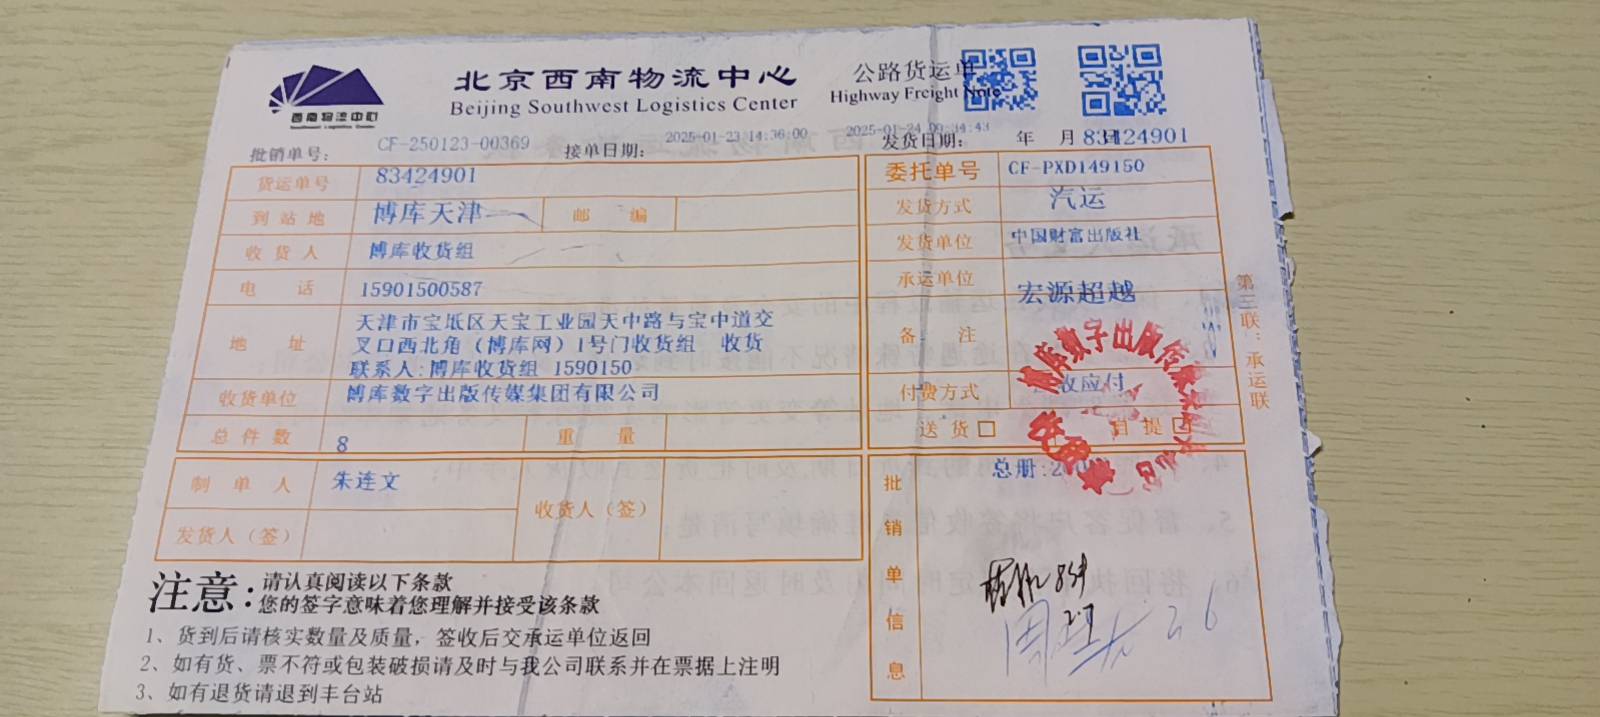 西南物流中心
北京西南物流中心
Beijing Southwest Logistics Center
公路货运单
Highway Freight Note
批销单号：
CF-250123-00369
接单日期：
2025-01-23 14:36:00
发货日期：
2025-01-24 00:34:43
年 月
83424901
货运单号
83424901
委托单号
CF-PXD149150
到站地
博库天津
邮 编
发货方式
汽运
收货人
博库收货组
发货单位
中国财富出版社
电 话
15901500587
承运单位
宏源超越
地 址
天津市宝坻区天宝工业园天中路与宝中道交
叉口西北角（博库网）1号门收货组 收货
联系人:博库收货组 1590150
备 注
收货单位
博库数字出版传媒集团有限公司
付费方式
收应付
总件数
8
重 量
送货□
自提□
制单人
朱连文
收货人（签）
发货人（签）
批销单信息
总册:
博库数字出版传
第三联：承运联
注意：
请认真阅读以下条款
您的签字意味着您理解并接受该条款
1、货到后请核实数量及质量，签收后交承运单位返回
2、如有货、票不符或包装破损请及时与我公司联系并在票据上注明
3、如有退货请退到丰台站